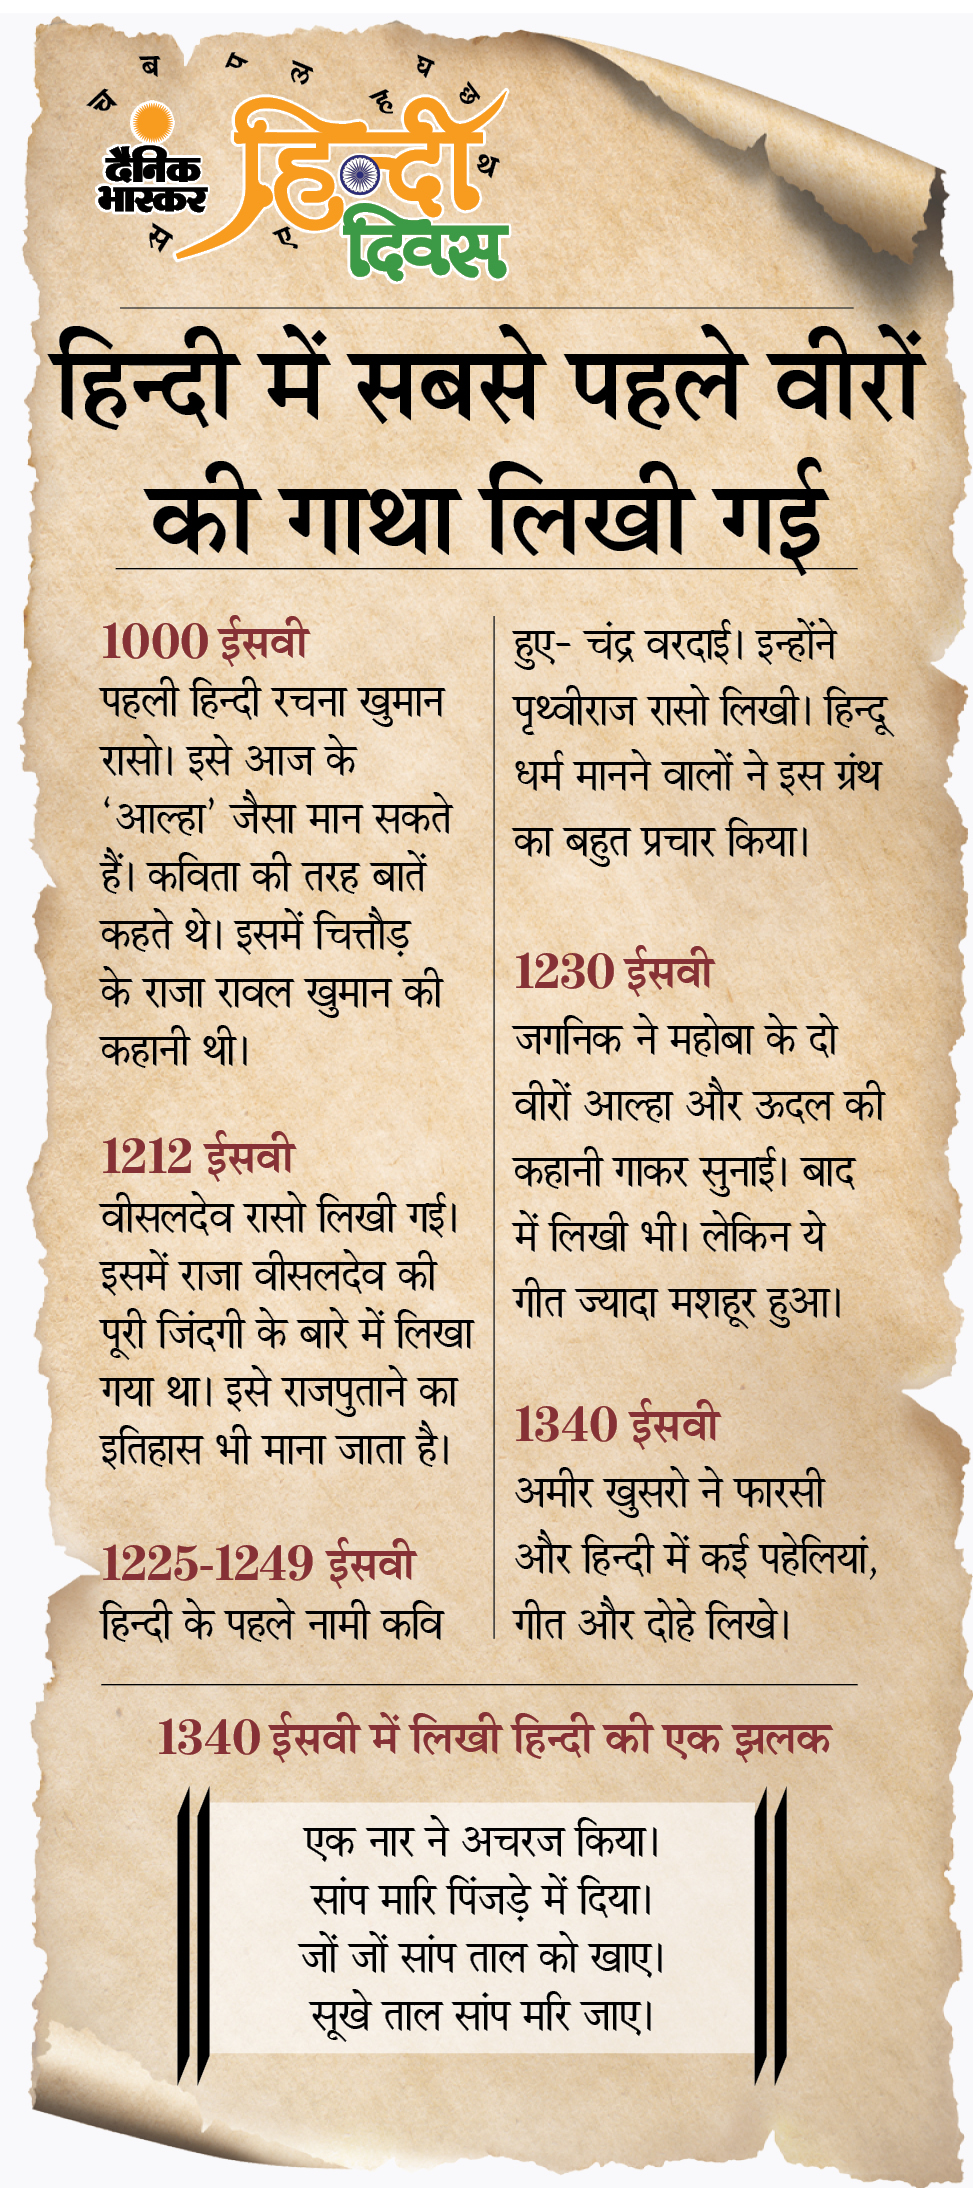 ब
प
ल
घ
छ
च
ह
थ
स
ए
दैनिक
भास्कर
हिन्दी
दिवस
हिन्दी में सबसे पहले वीरों
की गाथा लिखी गई
1000 ईसवी
पहली हिन्दी रचना खुमान
रासो। इसे आज के
‘आल्हा’ जैसा मान सकते
हैं। कविता की तरह बातें
कहते थे। इसमें चित्तौड़
के राजा रावल खुमान की
कहानी थी।
1212 ईसवी
वीसलदेव रासो लिखी गई।
इसमें राजा वीसलदेव की
पूरी जिंदगी के बारे में लिखा
गया था। इसे राजपुताने का
इतिहास भी माना जाता है।
1225-1249 ईसवी
हिन्दी के पहले नामी कवि
हुए- चंद्र वरदाई। इन्होंने
पृथ्वीराज रासो लिखी। हिन्दू
धर्म मानने वालों ने इस ग्रंथ
का बहुत प्रचार किया।
1230 ईसवी
जगनिक ने महोबा के दो
वीरों आल्हा और ऊदल की
कहानी गाकर सुनाई। बाद
में लिखी भी। लेकिन ये
गीत ज्यादा मशहूर हुआ।
1340 ईसवी
अमीर खुसरो ने फारसी
और हिन्दी में कई पहेलियां,
गीत और दोहे लिखे।
1340 ईसवी में लिखी हिन्दी की एक झलक
एक नार ने अचरज किया।
सांप मारि पिंजड़े में दिया।
जों जों सांप ताल को खाए।
सूखे ताल सांप मरि जाए।